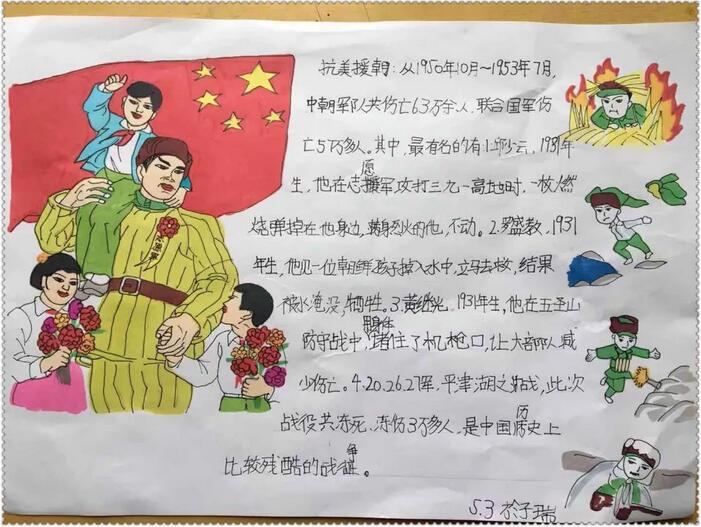 抗美援朝：从1950年10月～1953年7月，
中朝军队共伤亡63万余人，联合国军伤
亡5万多人。其中，最有名的有1.邱少云，1931年
生，他在志愿军攻打三九一高地时，一枚燃
烧弹掉在他身边，满身烈火的他，不动。2.罗盛教，1931
年生，他见一位朝鲜孩子掉入水中，立马去救，结果
被水淹没，牺牲。3.黄继光，1931年生，他在五圣山
防守战中，堵住了机枪口，让大部队减
少伤亡。4.20.26.27军，平津湖之战，此次
战役共冻死、冻伤3万多人，是中国历史上
比较残酷的战争。
5.3 於子瑞